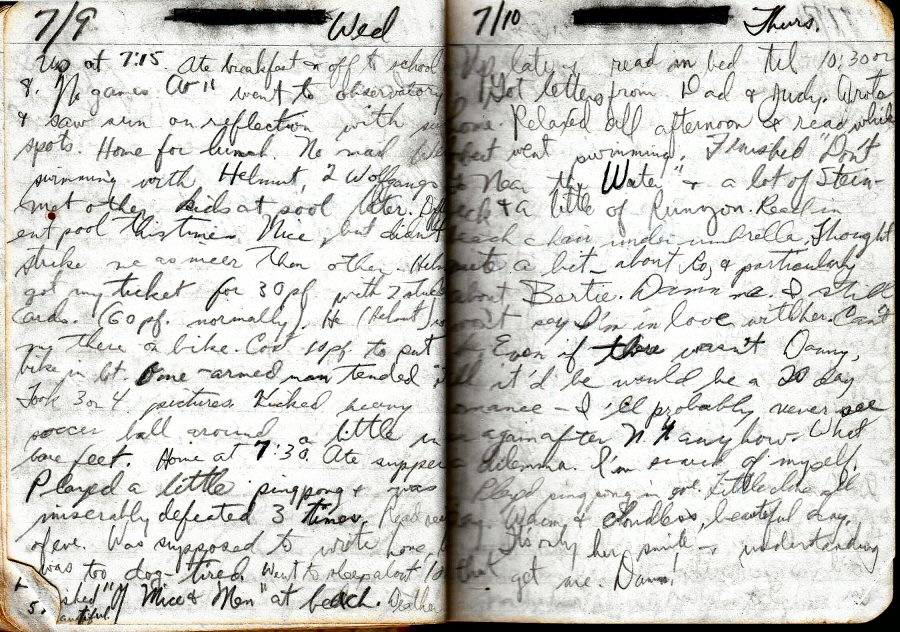 7/9 Wed
Up at 7:15. Ate breakfast & off to school
8. No games. At 11 went to observatory
& saw sun on reflection with sun
spots. Home for lunch. No mail. We
swimming with Helmut, 2 Wolfgangs
met other kids at pool later. Differ
ent pool this time. Nice, but didn't
strike me as nicer than other. Helm
got my ticket for 30 pf. with 2 student
cards. (60 pf. normally). He (Helmut)
me there on bike. Cost 10 pf. to put
bike in lot. One-armed man tended it
Took 3 or 4 pictures. Kicked heavy
soccer ball around a little in
bare feet. Home at 7:30. Ate supper
Played a little pingpong & was
miserably defeated 3 times. Read rest
of eve. Was supposed to write home,
was too dog-tired. Went to sleep about 10
shed "Of Mice & Men" at beach.
5. autiful
7/10 Thurs.
Up late & read in bed til 10:30 or
Got letters from Dad & Judy. Wrote
home. Relaxed all afternoon & read while
went swimming. Finished "Don't
Go Near the Water" & a lot of Stein-
beck & a little of Runyon. Read in
beach chair under umbrella. Thought
quite a bit - about Ro, & particularly
about Bartie. Damn me. I still
won't say I'm in love with her. Can't
Even if there wasn't Danny,
it'd be would be a 20 day
romance - I'll probably never see
her again after N.Y. anyhow. What
a dilemma. I'm scared of myself.
Played pingpong in eve. Little else all
day. Warm & cloudless, beautiful day.
Its only her smile & understanding
that get me. Damn!